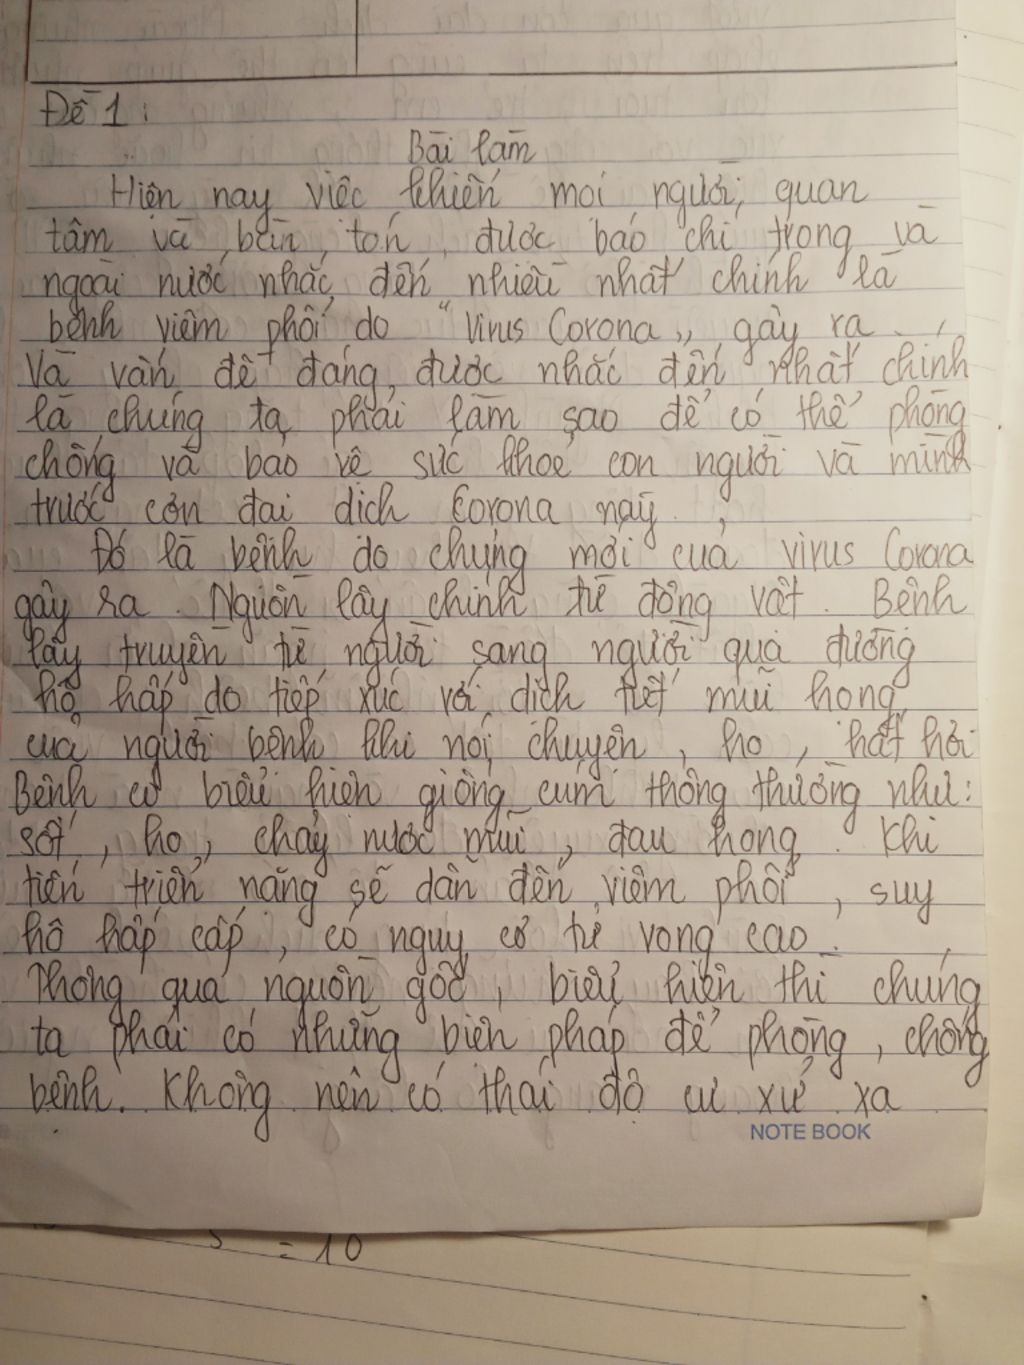 Đề 1:
Bài làm
Hiện nay việc khiến mọi người quan
tâm và bàn tán, được báo chí trong và
ngoài nước nhắc đến nhiều nhất chính là
bệnh viêm phổi do "Virus Corona" gây ra.
Và vấn đề đáng được nhắc đến nhất chính
là chúng ta phải làm sao để có thể phòng
chống và bảo vệ sức khoẻ con người và mình
trước cơn đại dịch Corona này.
Đó là bệnh do chủng mới của virus Corona
gây ra. Nguồn lây chính từ động vật. Bệnh
lây truyền từ người sang người qua đường
hô hấp do tiếp xúc với dịch tiết mũi họng
của người bệnh khi nói chuyện, ho, hắt hơi
Bệnh có biểu hiện giống cúm thông thường như:
sốt, ho, chảy nước mũi, đau họng. Khi
tiến triển nặng sẽ dẫn đến viêm phổi, suy
hô hấp cấp, có nguy cơ tử vong cao.
Thông qua nguồn gốc, biểu hiện thì chúng
ta phải có những biện pháp để phòng, chống
bệnh. Không nên có thái độ cư xử xa
NOTE BOOK
= 10